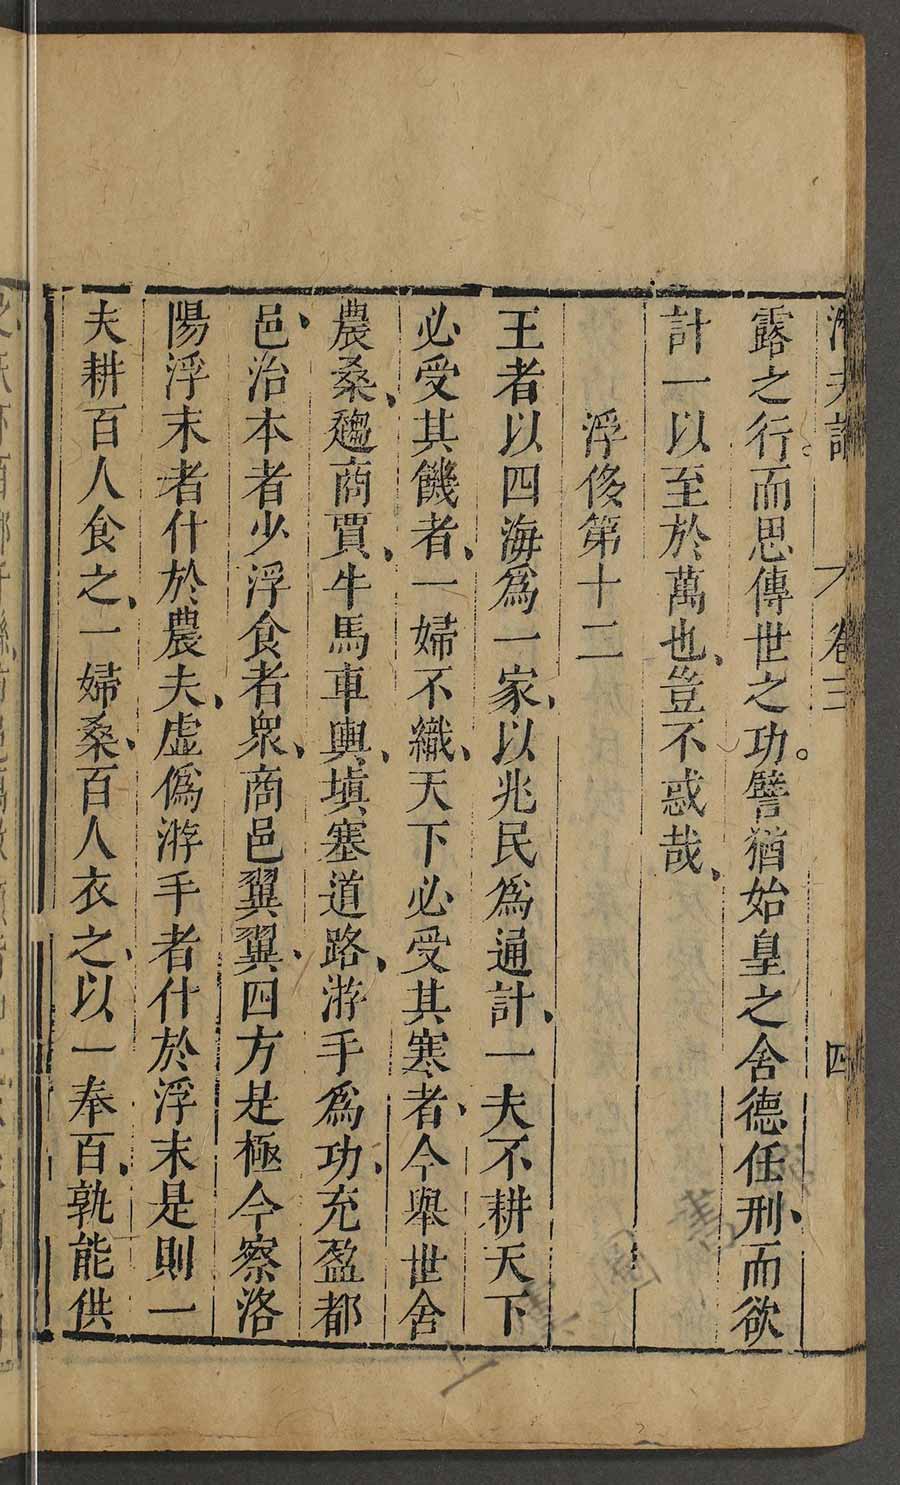 潛夫論 卷三 四
露之行而思傳世之功。譬猶始皇之舍德任刑、而欲
計一以至於萬也、豈不惑哉、
浮侈第十二
王者以四海爲一家、以兆民爲通計、一夫不耕天下
必受其饑者、一婦不織、天下必受其寒者、今舉世舍
農桑、趨商賈、牛馬車輿、塡塞道路、游手爲功、充盈都
邑、治本者少浮食者衆、商邑翼翼、四方是極今察洛
陽浮末者什於農夫、虛僞游手者什於浮末是則一
夫耕百人食之、一婦桑、百人衣之、以一奉百、孰能供